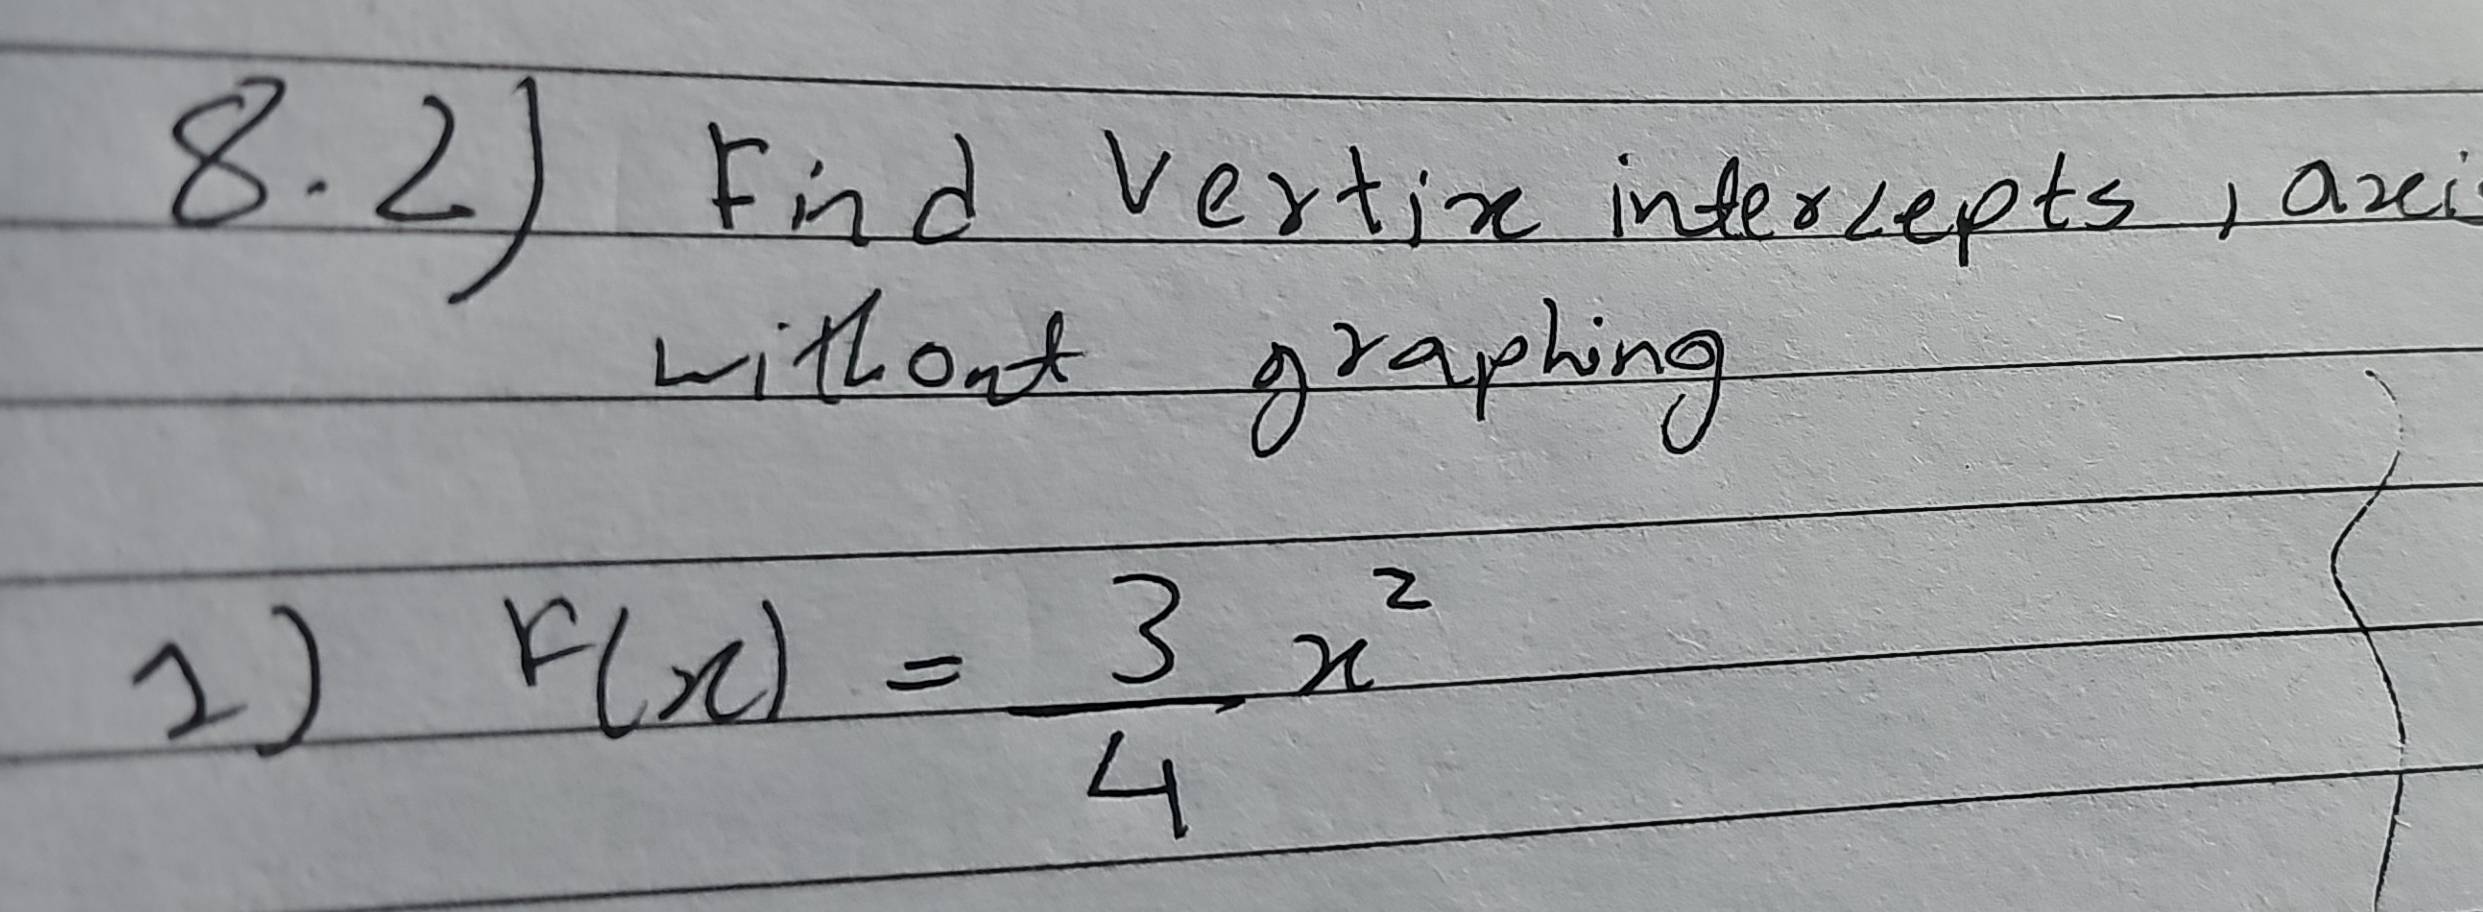 8.2) Find Vertix intercepts, axis
without graphing
1) F(x) = 3/4 x²